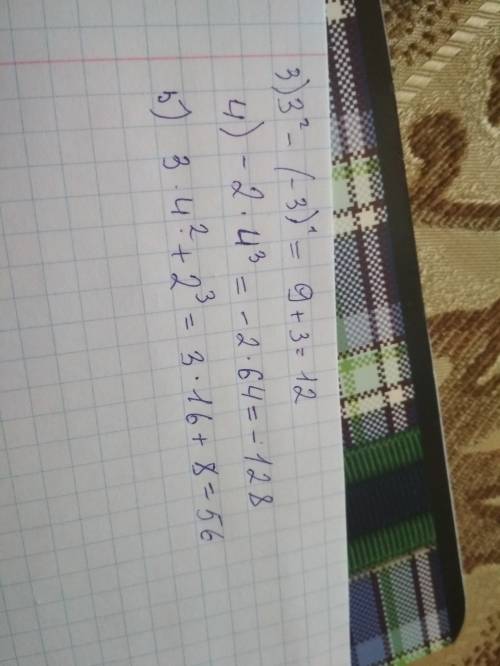 3) 3² - (-3)¹ = 9 + 3 = 12
4) - 2 · 4³ = - 2 · 64 = - 128
5) 3 · 4² + 2³ = 3 · 16 + 8 = 56